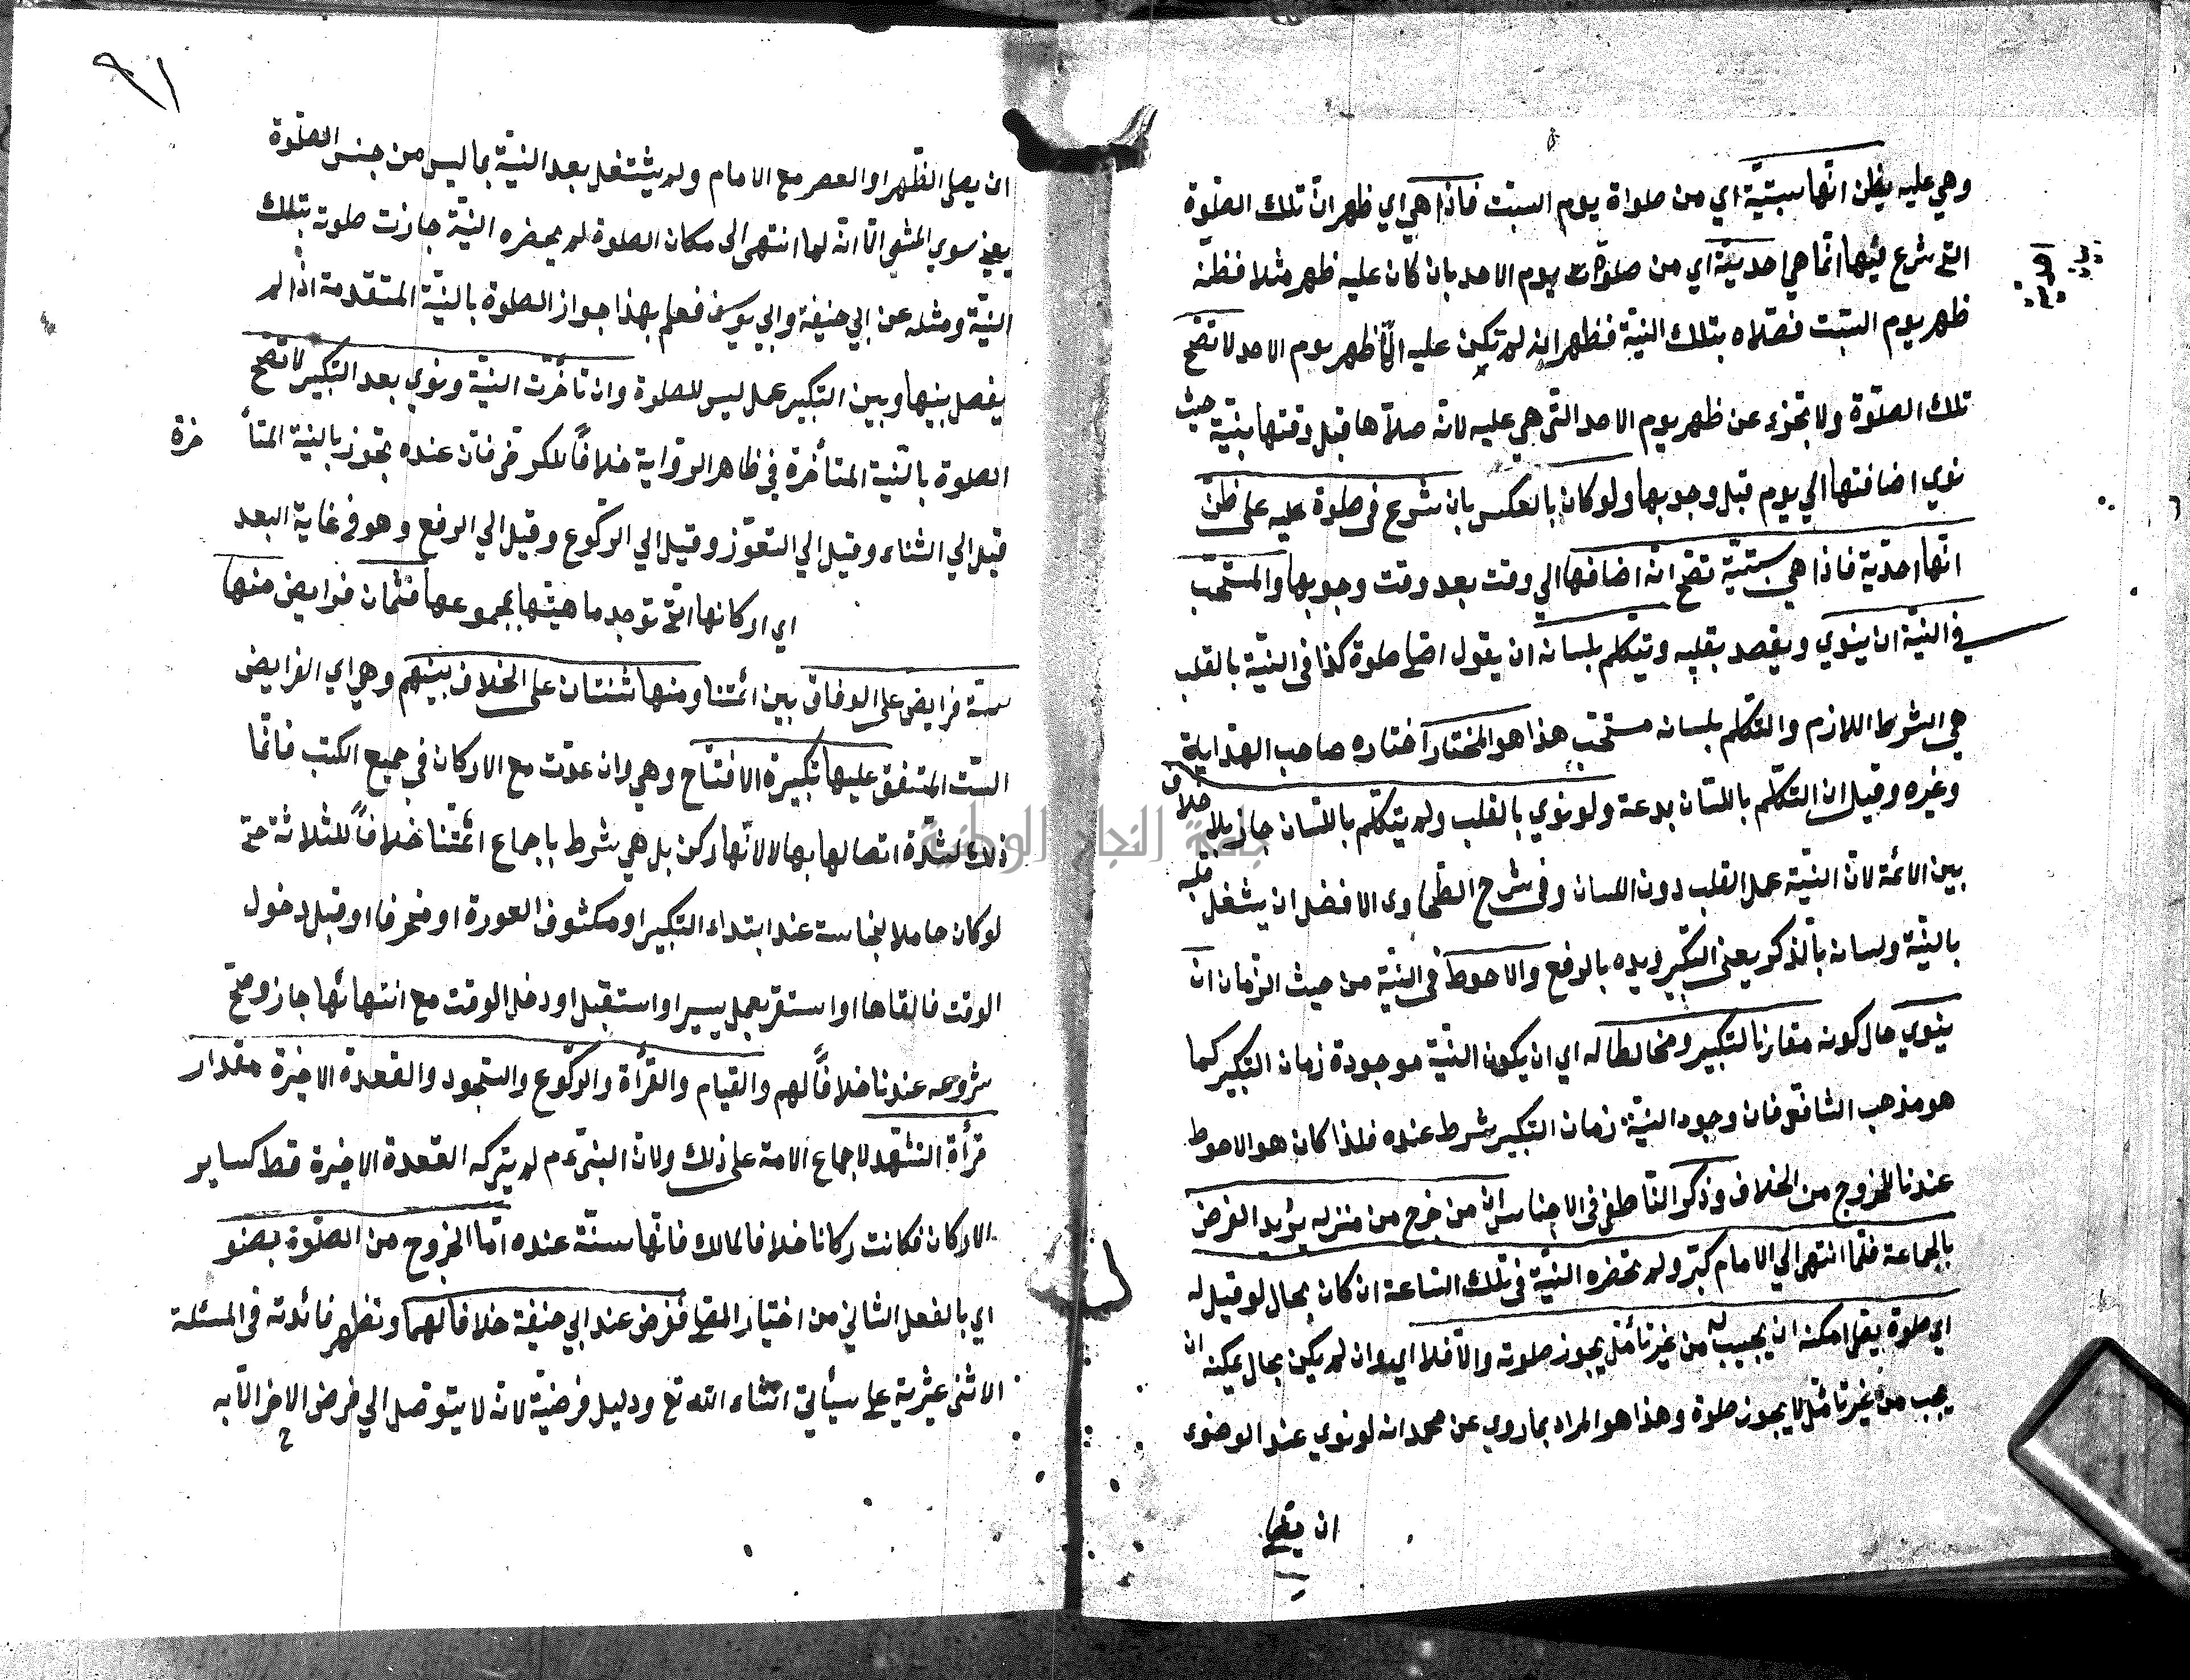 وهي عليه يظن انّها سبتيّة اي من صلواة يوم السبت فاذا هي اي ظهر انّ تلك الصّلوة
التي شرع فيها انّما هي احديّة اي من صلوٰات يوم الاحد بان كان عليه ظهر مثلا فظنّه
ظهر يوم السّبت فصّلاه بتلك النيّة فظهر انه لم تكن عليه الّا ظهر يوم الاحد لا تصّح
تلك الصلّوة ولا تجزء عن ظهر يوم الاحد التّي هي عليه لانّه صلّاها قبل وقتها بنيّة حيث
نوي اضافتها الي يوم قبل وجوبها ولو كان بالعكس بان شرع في صلوة عليه على ظنّ
انّها احدّية فاذا هي سبتيّة تصّح انّه اضافها الي وقت بعد وقت وجوبها والمستحّب
في النيّة ان ينوي ويقصد بقلبه ويتكلم بلسانه ان يقول اصلي صلوة كذا في النية بالقلب
هي الشرط اللازم والتّكلم بلسانه مستحّب هذا هو المختار اختاره صاحب الهداية
وغيره وقيل ان التّكلّم باللّسان بدعة ولو نوي بالقلب ولم يتكلّم باللّسان جاز بلا خلاف
بين الائمة لانّ النيّة عمل القلب دون اللسان وفي شرح الطّحاوى الافضل ان يشغل قلبه
بالنيّة ولسانه بالّذكر يعني التّكبير ويده بالرفع والاحوط في النيّة من حيث الزّمان ان
ينوي حال كونه مقارنا لتكبير ومخالطا له اي ان يكون النيّة موجودة زمان التكبير كما
هو مذهب الشافعي فان وجود النيّة زمان التكبير شرط عنده فلذا كان هو الاحوط
عندنا للخروج من الخلاف وذكر النّاطفي في الاجناس انّ من خرج من منزله يريد الفرض
بالجماعة فلّما انتهى الي الامام كبّر ولم تحضره النيّة في تلك السّاعة ان كان بحال لو قيل له
اي صلوة يصلي امكنه ان يجيب له من غير تأمّل يجوز صلوته والّا فلا اي وان لم يكن بحال يمكنه ان
يجب من غير تأمّل لا يجوز صلوة وهذا هو المراد بما روي عن محمد انه لو نوي عند الوضوء
ان يصلي
٩١
ان يصلي الظّهر او العصر مع الامام ولم يشتغل بعد النيّة بما ليس من جنس الصّلوة
يعني سوي المشي الّا انّه لما انتهى الى مكان الصلوة لم يحضره النيّة جازت صلوته بتلك
النيّة ومثله عن ابي حنيفة وابي يوسف فعلم بهذا جواز الصلوة بالنيّة المتقدمة اذا لم
يفصل بينها وبين التكبير عمل ليس للصلوة وان تأخّرت النيّة ونوي بعد التّكبير لا تصّح
الصلوة بالنّية المتأخرة في ظاهر الروّاية خلافاً للكرخي فانّ عنده تجوز بالنية المتأ خرة
قيل الي الثناء وقيل الي التعوّز وقيل الي الرّكوع وقيل الي الرفع وهو في غاية البعد
اي اركانها التّي توجد ماهيّتها بمجموعها فثمان فرايض منها
ستة فرايض على الوفاق بين ائمتنا ومنها ثنتان على الخلاف بينهم وهي اي الفرايض
السّت المتفق عليها تكبيرة الافتتاح وهي وان عدّت مع الاركان في جميع الكتب فانّما
ذلك لشدّة اتصالها بها لا لانّها ركن بل هي شرط باجماع ائمّتنا خلافاً للثلاثة حتّى
لو كان حاملا لنجاسة عند ابتداء التكبير او مكشوف العورة او منحرفا او قبل دخول
الوقت فالقاها او استقر بعمل يسير او استقبل او دخل الوقت مع انتهائها جاز وصّح
شروعه عندنا خلافاً لهم والقيام والقرأة والرّكوع والسّجود والقعدة الاخيرة مقدار
قرأة التشهّد لاجماع الامة على ذلك ولانّ النبّي عم لم يتركه القعدة الاخيرة قط كساير
الاركان فكانت ركانا خلافا لمالك فانّها سنّة عنده امّا الخروج من الصلّوة بصنو
اي بالفعل الشاني من اختيار المصلي ففرض عند ابي حنيفة خلافا لهما وتظهر فائدته في المسئلة
الاثنى عشرية على سيأتي انشاء الله تع ودليل فرضيّة لانّه لا يتوصّل الي فرض الاخر الّا به